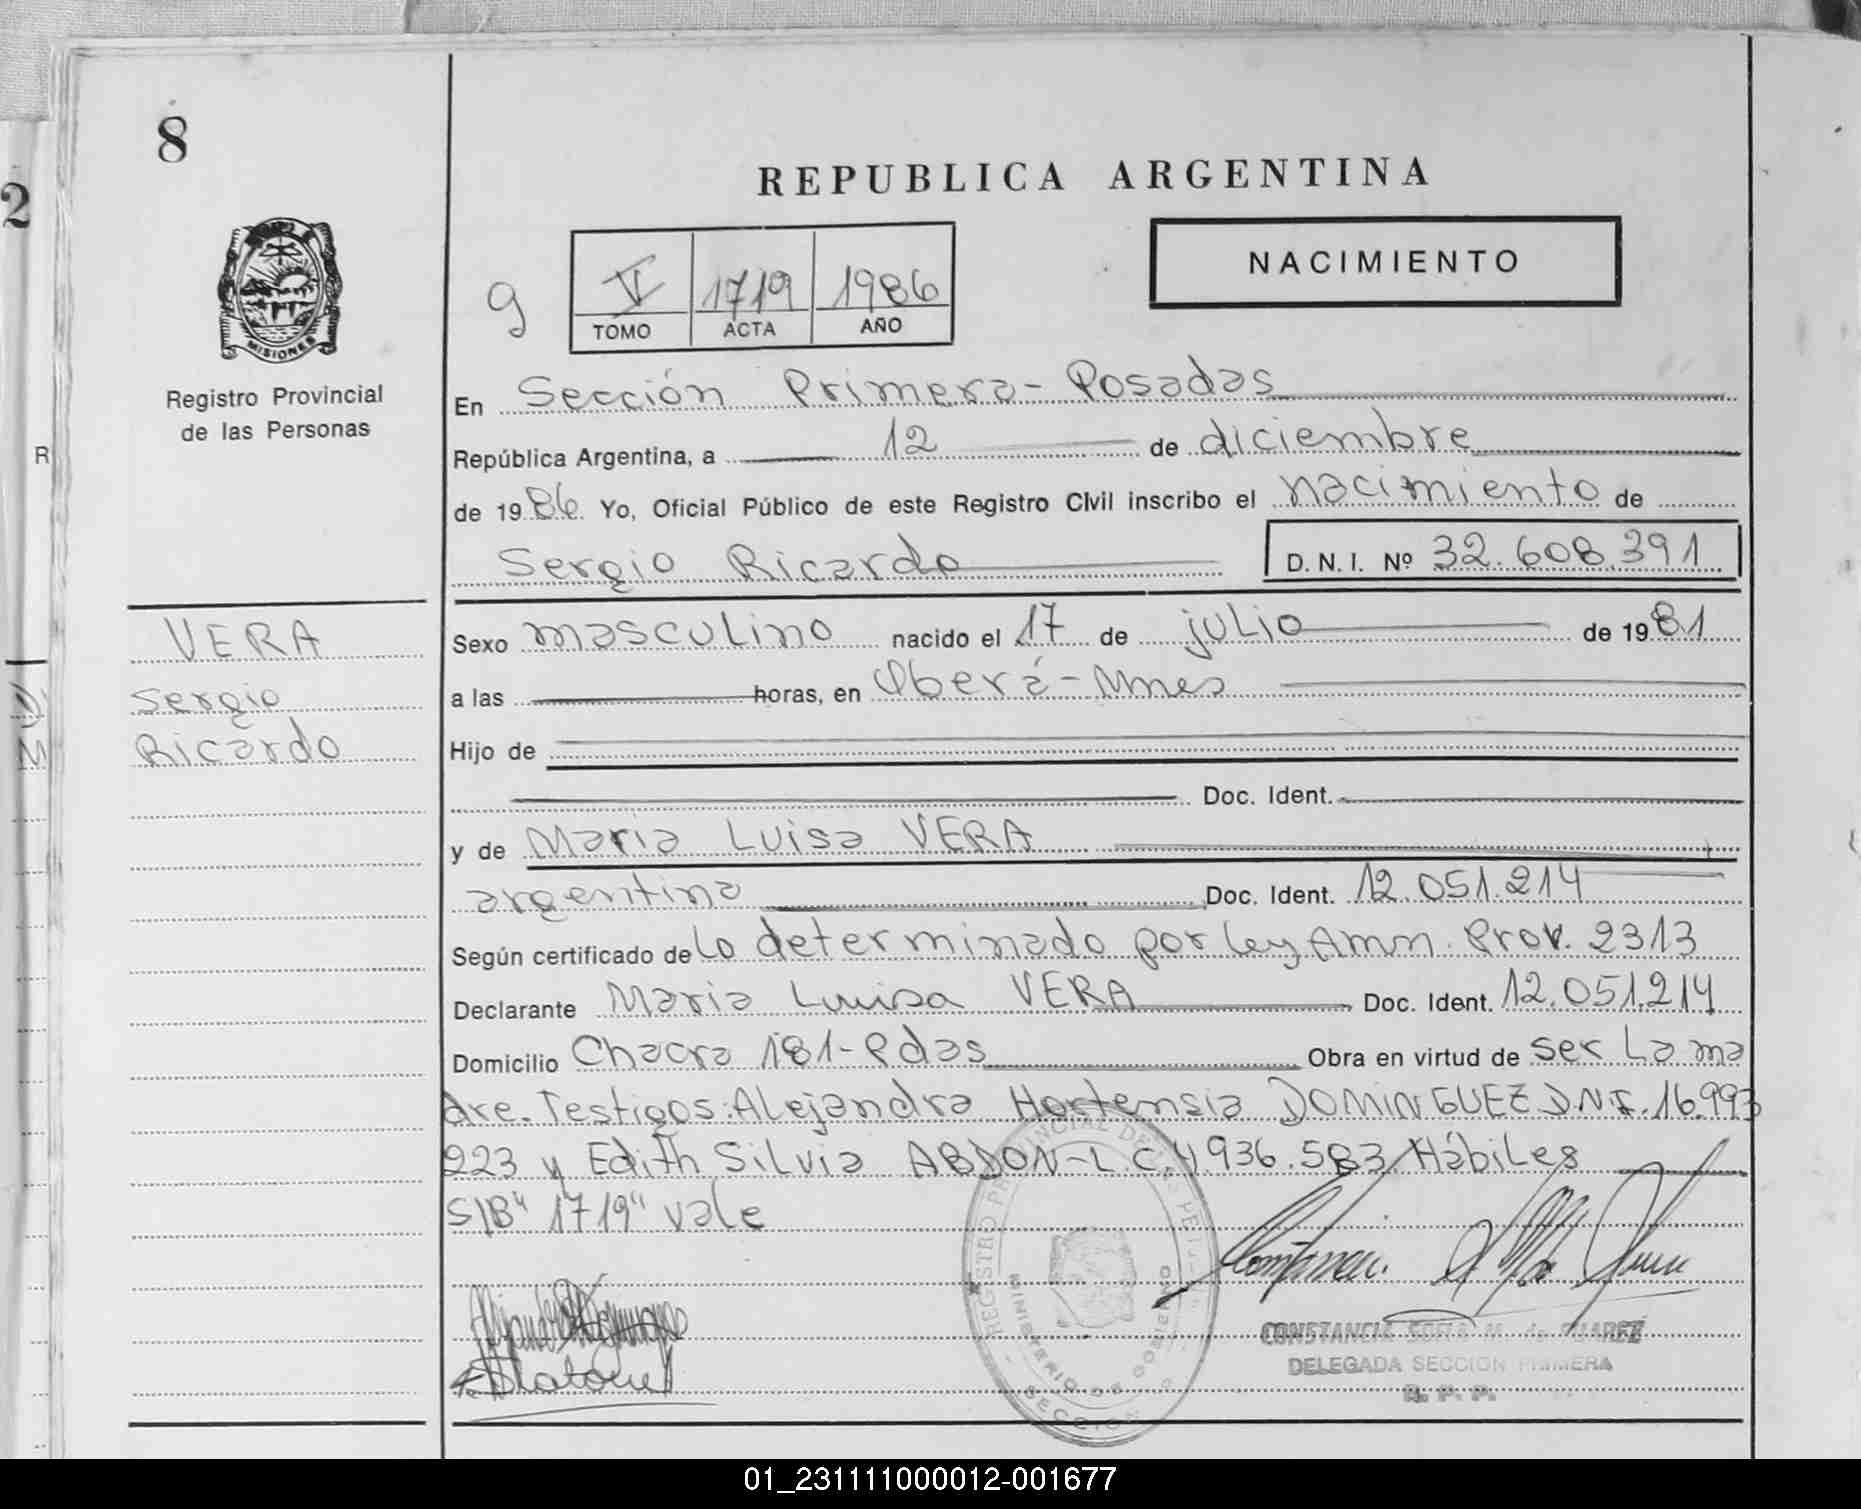 8
2
REPUBLICA ARGENTINA
NACIMIENTO
9
V 1719 1986
TOMO ACTA AÑO
MISIONES
Registro Provincial
de las Personas
En Sección Primera - Posadas
República Argentina, a 12 de diciembre
R
de 1986 Yo, Oficial Público de este Registro Civil inscribo el nacimiento de
Sergio Ricardo D. N. I. Nº 32.608.391
VERA
Sergio
Ricardo
Sexo masculino nacido el 17 de julio de 1981
a las horas, en Oberá - Mnes
Hijo de
Doc. Ident.
y de Maria Luisa VERA
argentina Doc. Ident. 12.051.214
Según certificado de lo determinado por ley Amn. Prov. 2313
Declarante Maria Luisa VERA Doc. Ident. 12.051.214
Domicilio Chacra 181 - Pdas Obra en virtud de ser La ma
dre. Testigos: Alejandra Hortensia DOMINGUEZ D.N.I. 16.993
223 y Edith Silvia ABDON - L.C. 4.936.583 Hábiles
S/B "1719" vale
REGISTRO PROVINCIAL DE LAS PERSONAS
MINISTERIO DE GOBIERNO
SECCION
CONSTANCIA SOFIA M. de SUAREZ
DELEGADA SECCION PRIMERA
R. P. P.
01_231111000012-001677